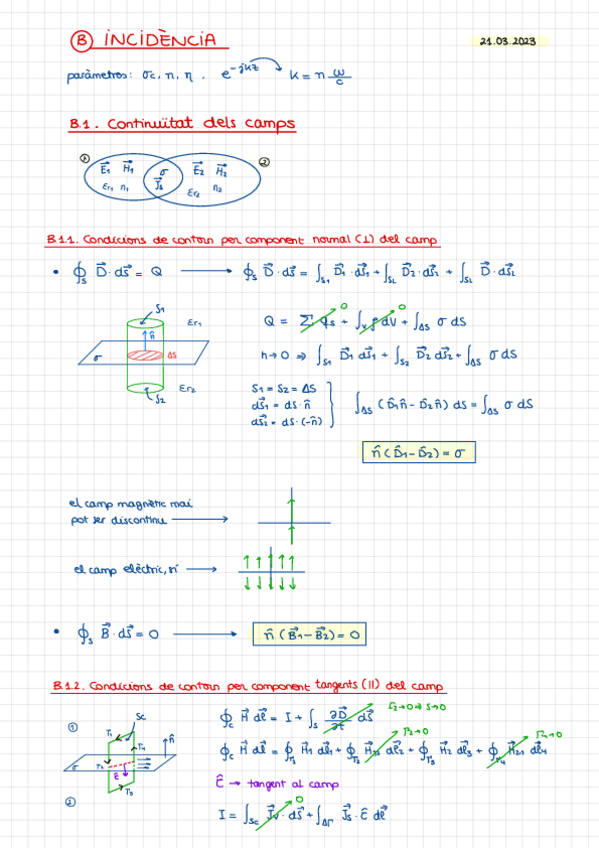 B INCIDÈNCIA
21.03.2023
paràmetres: σc, n, η. e^-jkz k = n ω/c
B.1. Continuïtat dels camps
① E⃗1 H⃗1 σ E⃗2 H⃗2 ②
εr1 n1 J⃗s εr2 n2
B.1.1. Condicions de contorn per component normal (⊥) del camp
• ∮s D⃗ · ds⃗ = Q → ∮s D⃗ · ds⃗ = ∫s1 D⃗1 · ds⃗1 + ∫sL D⃗2 · ds⃗2 + ∫sL D⃗ · ds⃗L
S1 εr1 n̂ σ ΔS εr2 S2
Q = Σ qs + ∫v ρ dV + ∫ΔS σ dS
0 0
h→0 ⇒ ∫s1 D⃗1 ds⃗1 + ∫s2 D⃗2 ds⃗2 + ∫ΔS σ dS
S1 = S2 = ΔS
ds⃗1 = ds · n̂
ds⃗2 = ds · (-n̂)
∫ΔS (D⃗1 n̂ - D⃗2 n̂) ds = ∫ΔS σ dS
n̂ (D⃗1 - D⃗2) = σ
el camp magnètic mai
pot ser discontinu →
el camp elèctric, sí →
• ∮s B⃗ · ds⃗ = 0 → n̂ (B⃗1 - B⃗2) = 0
B.1.2. Condicions de contorn per component tangents (||) del camp
① Sc n̂ σ ②
∮c H⃗ dl⃗ = I + ∫s ∂D⃗/∂t ds⃗
Γ2→0 ⇒ S→0
∮c H⃗ dl⃗ = ∮Γ1 H⃗1 dl⃗1 + ∮Γ2 H⃗12 dl⃗2 + ∮Γ3 H⃗2 dl⃗3 + ∮Γ4 H⃗21 dl⃗4
Γ2→0 Γ4→0
t̂ → tangent al camp
I = ∫Sc J⃗v · ds⃗ + ∫ΔΓ J⃗s · t̂ dl⃗
0